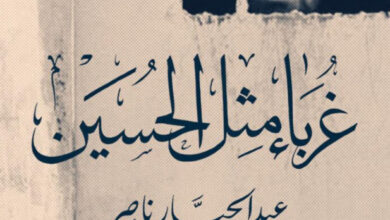 غُرَبَاءُ مِثِل الحُسَين
عبدالجبَّار ناصر